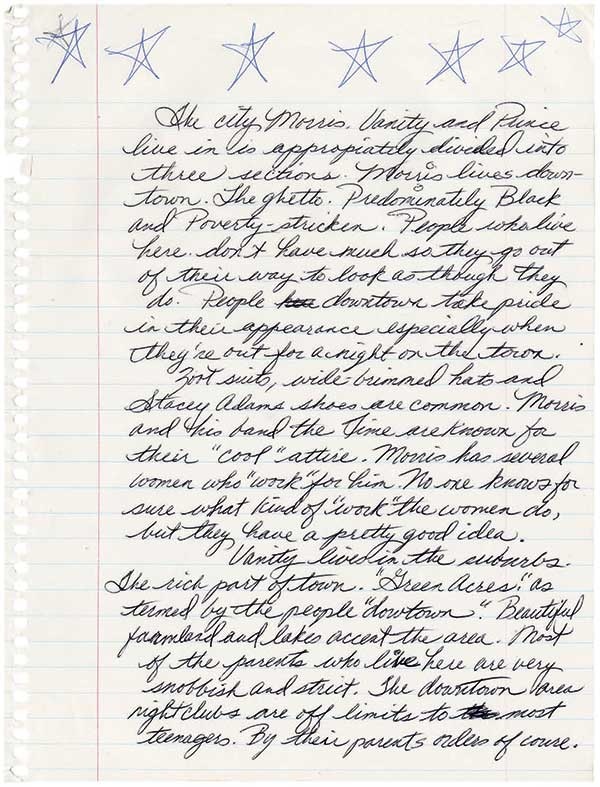 The city Morris. Vanity and Prince
live in is appropiatly divided into
three sections. Morris lives down-
town. The ghetto. Predominately Black
and Poverty-stricken. People who live
here. don't have much so they go out
of their way to look as though they
do. People downtown take pride
in their appearance especially when
they're out for a night on the town.
Zoot suits, wide-brimmed hats and
Stacey Adams shoes are common. Morris
and his band the Time are known for
their "cool" attire. Morris has several
women who "work" for him. No one knows for
sure what kind of "work" the women do,
but they have a pretty good idea.
Vanity lives in the suburbs.
The rich part of town. "Green Acres", as
termed by the people "dowtown". Beautiful
farmland and lakes accent the area. Most
of the parents who live here are very
snobbish and strict. The downtown area
nightclubs are off limits to most
teenagers. By their parents orders of course.